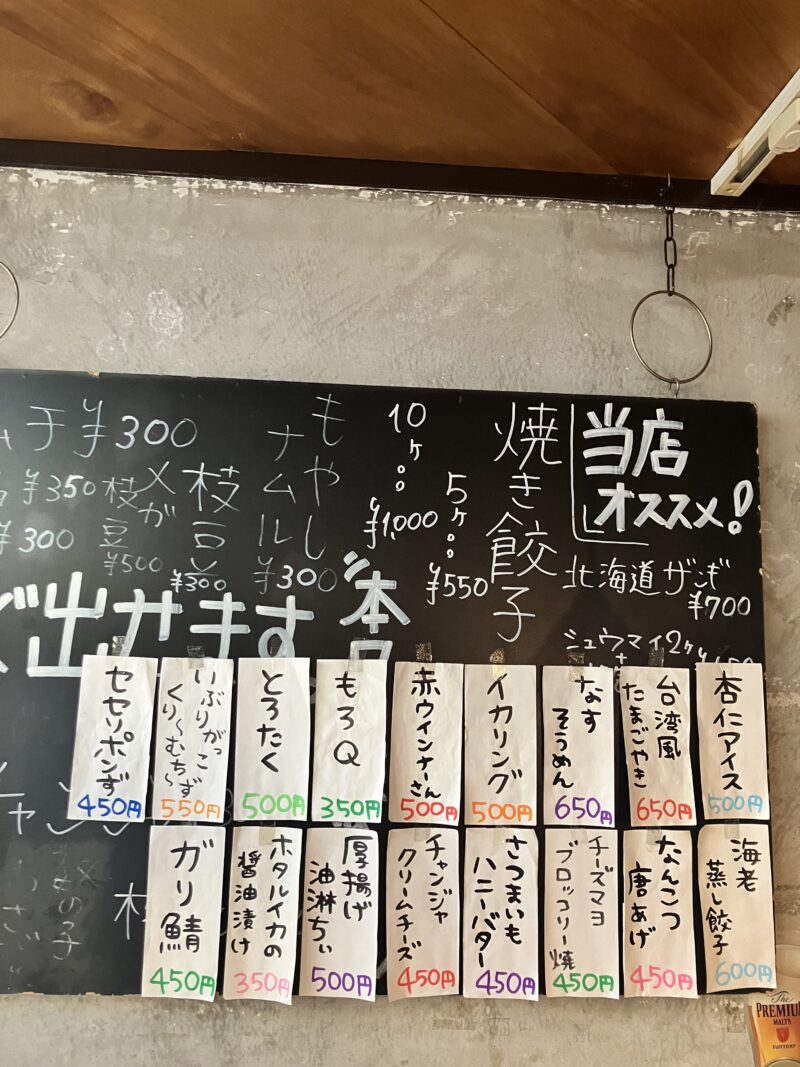 当店
オススメ!
北海道ザンギ
¥700
シュウマイ2ケ
焼き餃子
5ケ。。¥550
10ケ。。¥1,000
もやし
ナムル
¥300
枝豆
¥300
メガ
枝豆
¥500
¥300
¥350
¥300
出せます
杏仁アイス
500円
台湾風
たまごやき
650円
なす
そうめん
650円
イカリング
500円
赤ウインナーさん
500円
もろQ
350円
とろたく
500円
いぶりがっこ
くり〜むち〜ず
550円
セセリポンず
450円
海老
蒸し餃子
600円
なんこつ
唐あげ
450円
チーズマヨ
ブロッコリー焼
450円
さつまいも
ハニーバター
450円
チャンジャ
クリームチーズ
450円
厚揚げ
油淋ちぃ
500円
ホタルイカの
醤油漬け
350円
ガリ鯖
450円
The
PREMIUM
MALT'S
SUNTORY